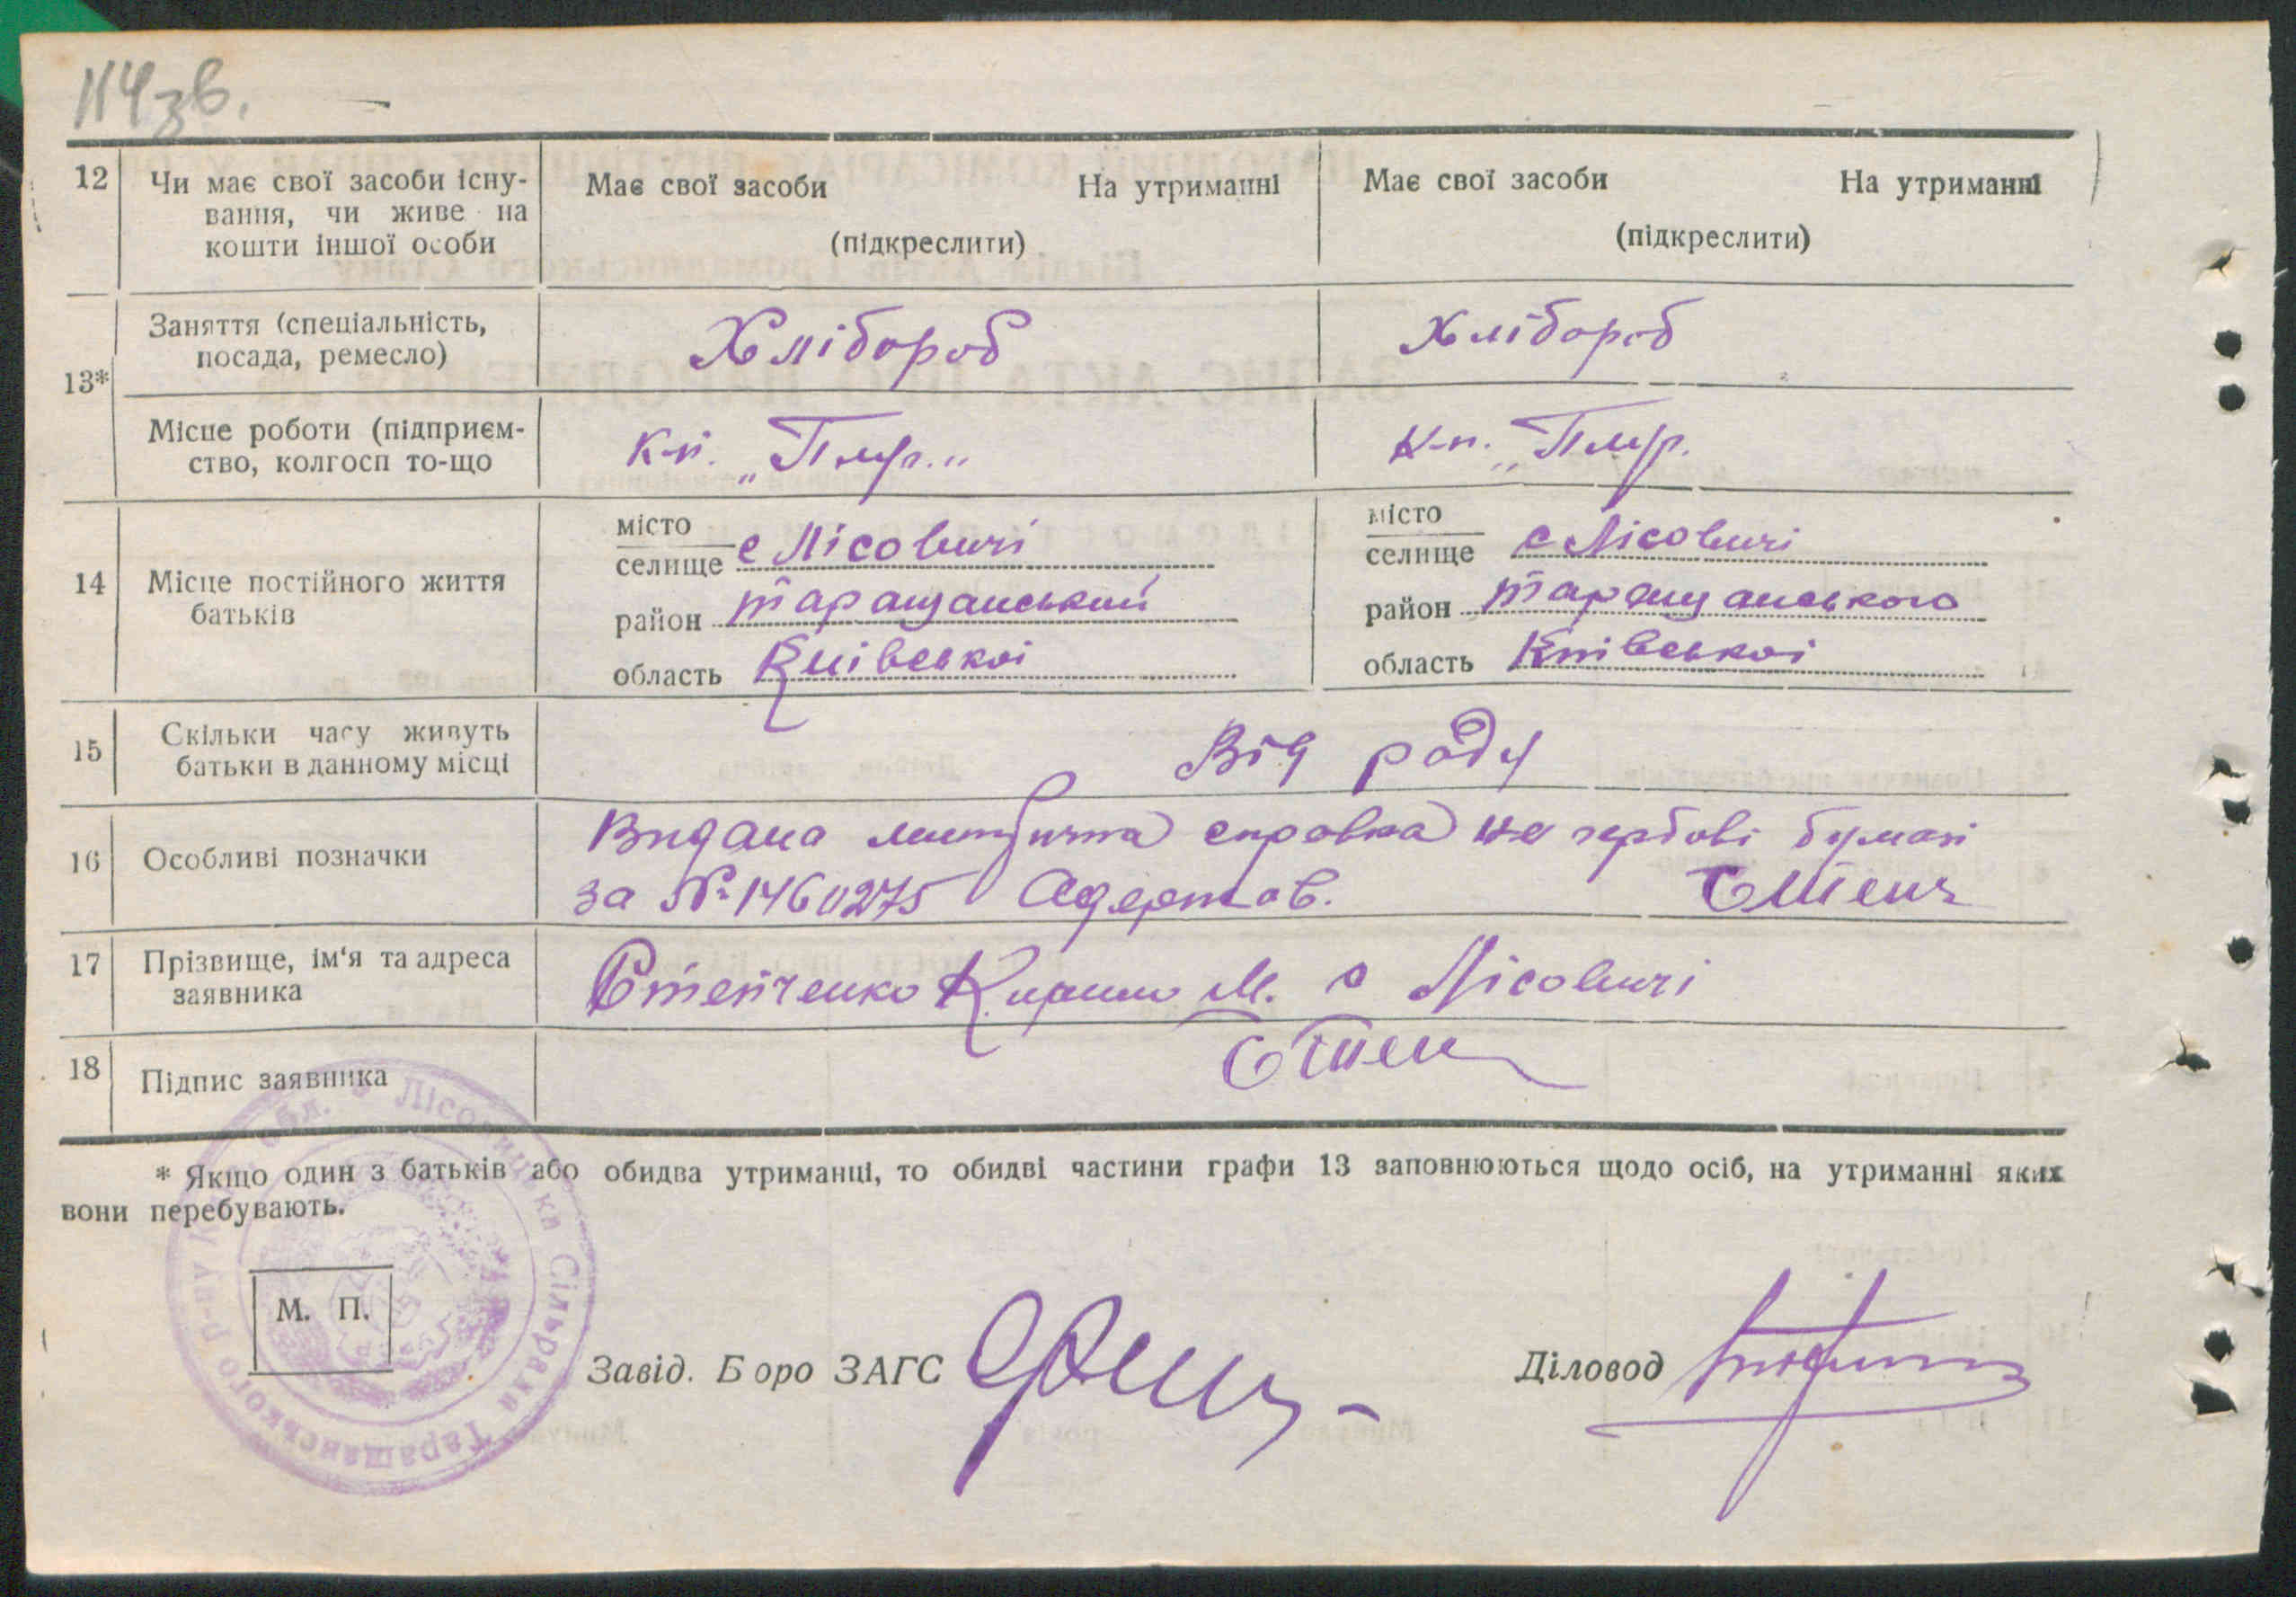 114зв.
12 Чи має свої засоби існу- Має свої засоби На утриманні Має свої засоби На утриманні
вання, чи живе на
кошти іншої особи (підкреслити) (підкреслити)
13* Заняття (спеціальність, Хлібороб Хлібороб
посада, ремесло)
Місце роботи (підприєм- К-п. К-п.
ство, колгосп то-що
14 Місце постійного життя місто місто
батьків селище с Лісовичі селище с Лісовичі
район таращанський район таращанського
область Київської область Київської
15 Скільки часу живуть Від роду
батьки в данному місці
16 Особливі позначки Видана справка на гербові бумазі
за № 1460275 Одержав. Степч
17 Прізвище, ім'я та адреса Степченко М. с Лісовичі
заявника
18 Підпис заявника Степ
* Якщо один з батьків або обидва утриманці, то обидві частини графи 13 заповнюються щодо осіб, на утриманні яких
вони перебувають.
М. П.
Завід. Б оро ЗАГС Діловод
Сільрада Таращанського р-ну